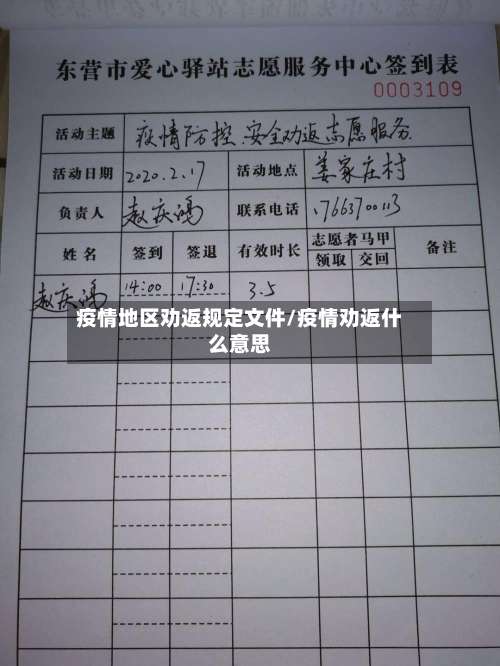 东营市爱心驿站志愿服务中心签到表
0003109
活动主题 疫情防控、安全劝返志愿服务
活动日期 2020.2.17 活动地点 姜家庄村
负责人 赵庆鸿 联系电话 17663700113
姓名 签到 签退 有效时长 志愿者马甲 备注
领取 交回
赵庆鸿 14:00 17:30 3.5
疫情地区劝返规定文件/疫情劝返什
么意思